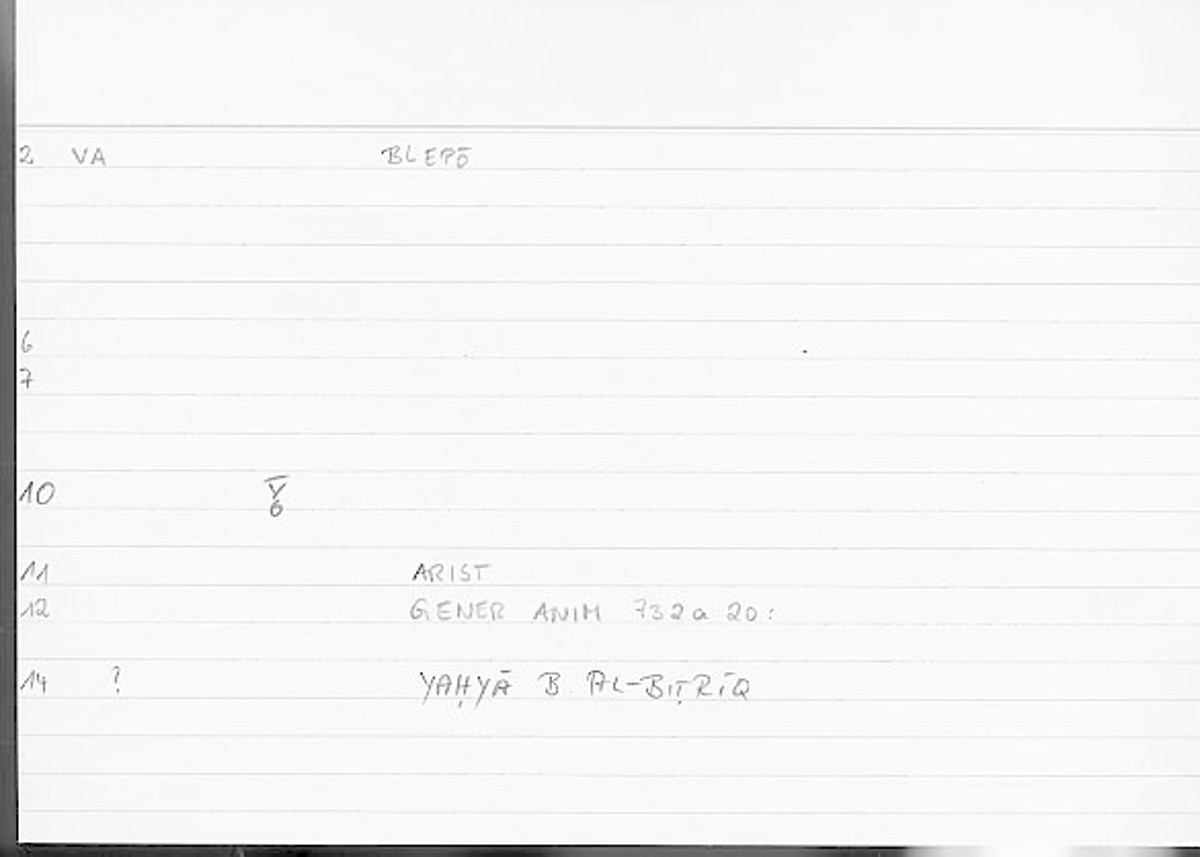 2 VA BLEPŌ
6
7
10 V̄
6
11 ARIST
12 GENER ANIM 732a 20:
14 ? YAḤYĀ B AL-BIṬRĪQ